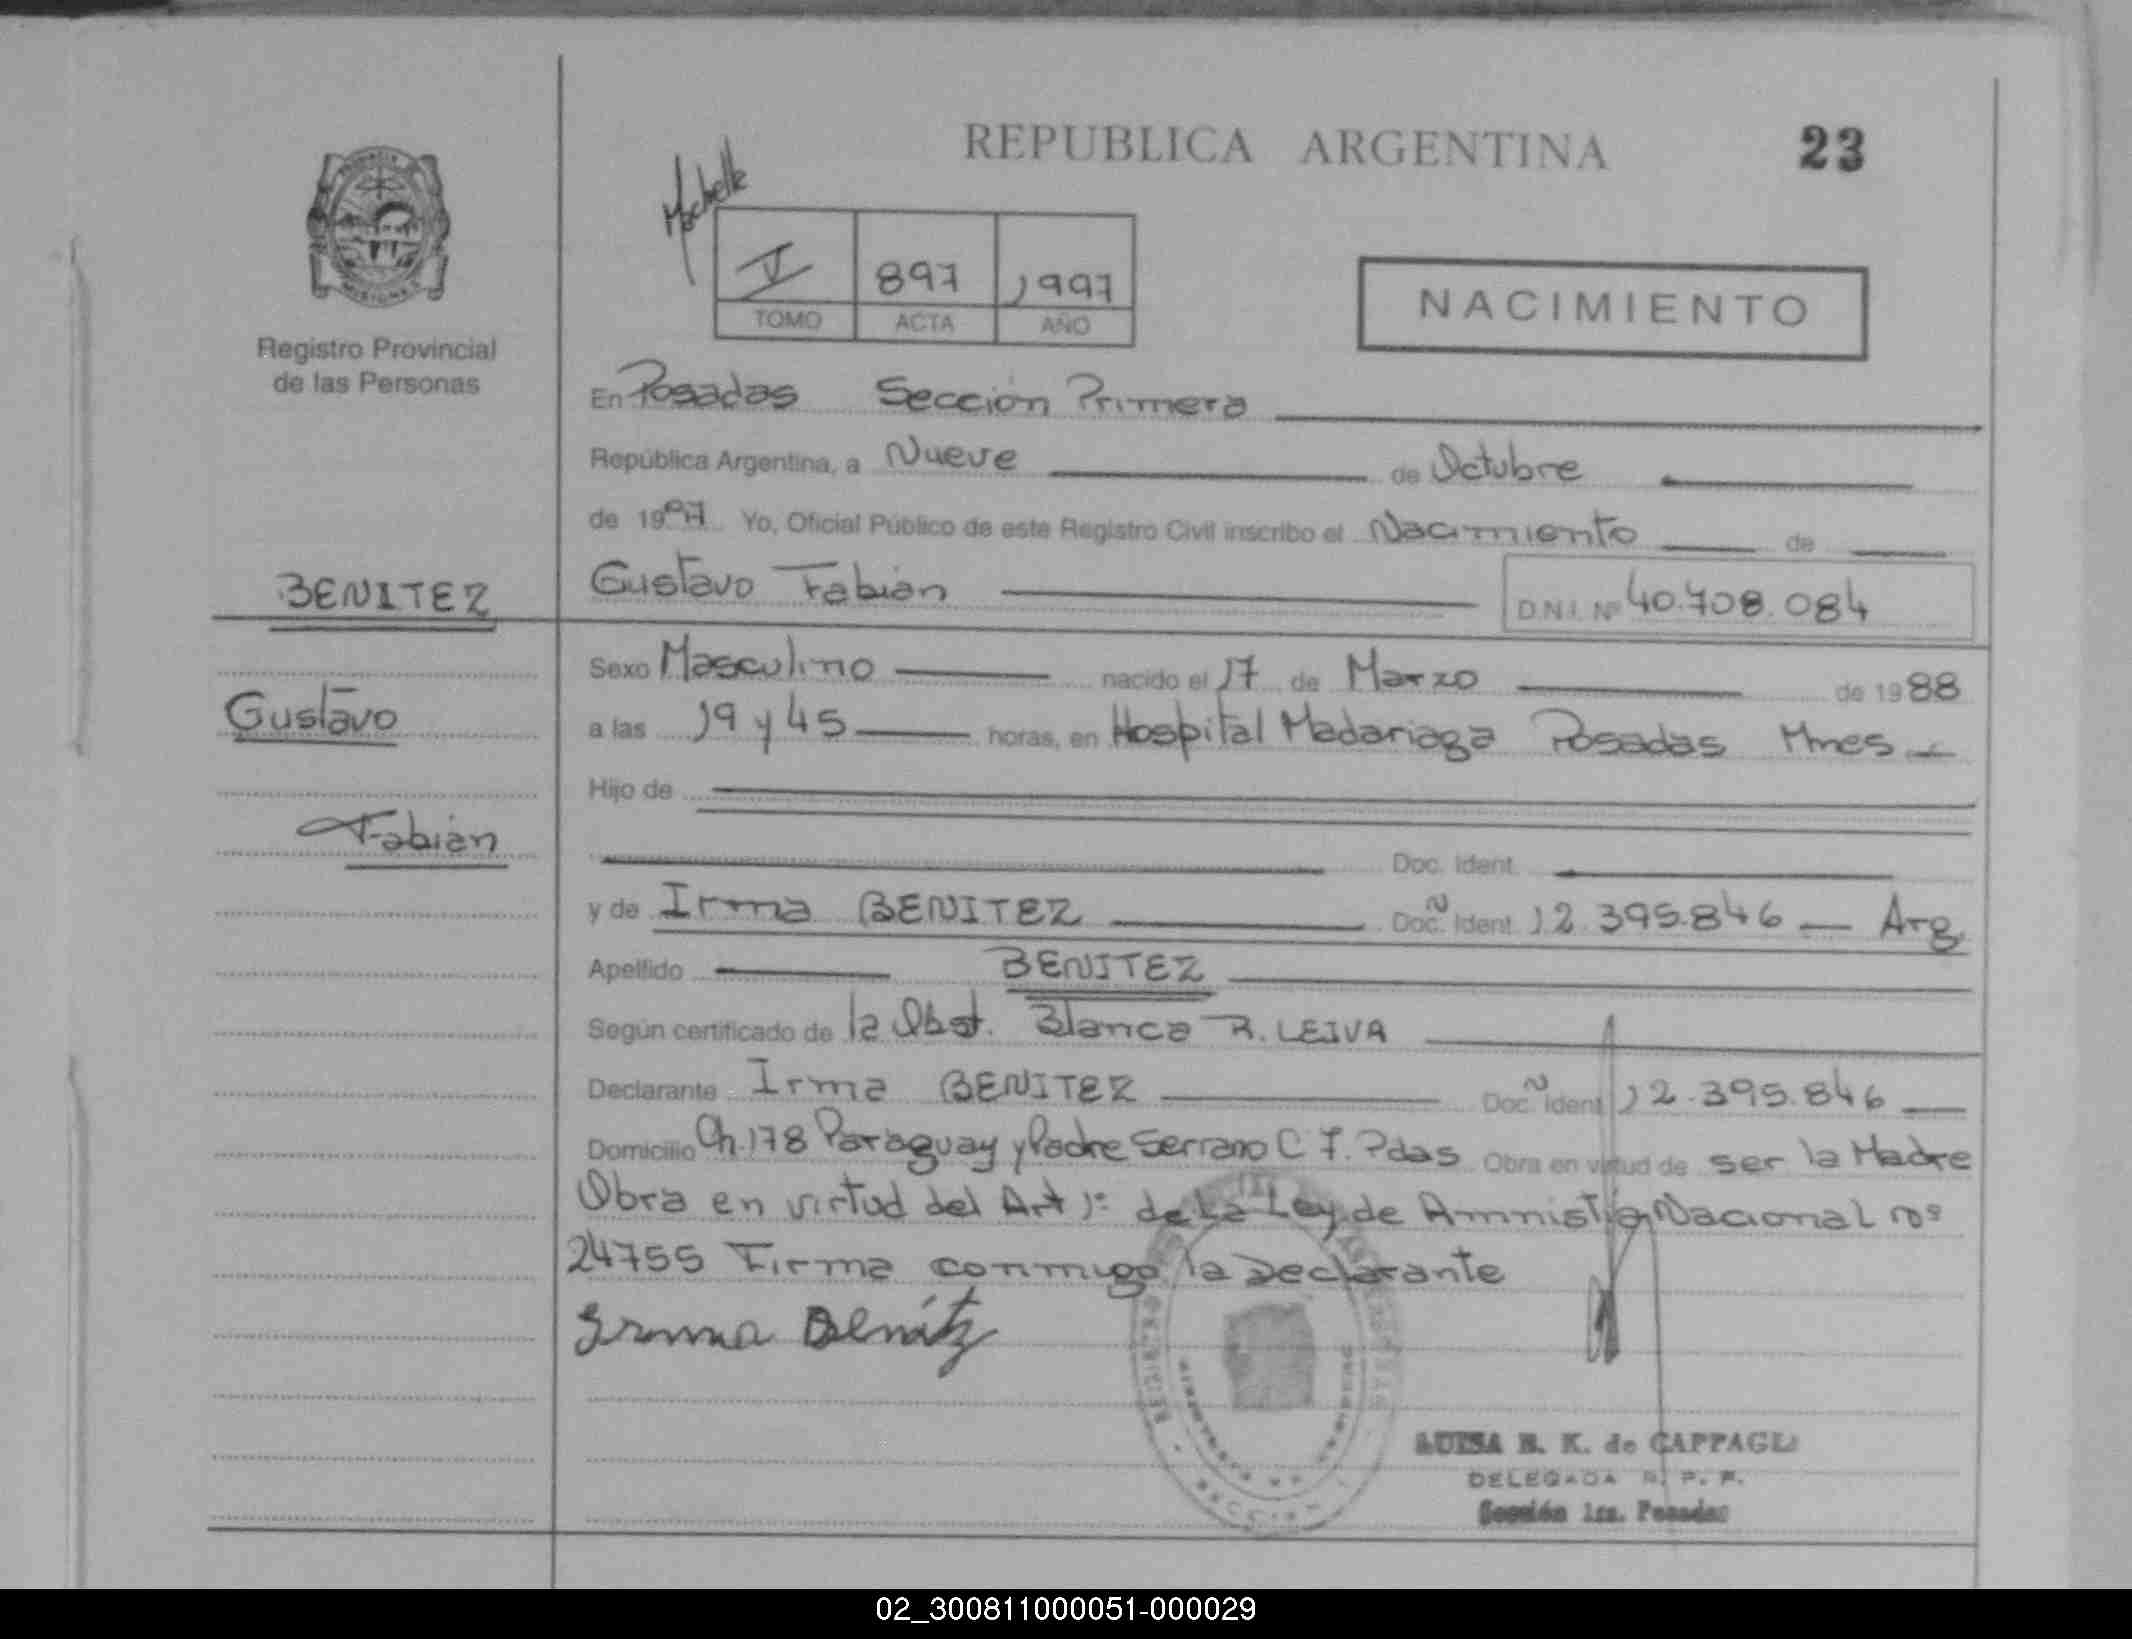 REPUBLICA ARGENTINA 23
V 897 1997
TOMO ACTA AÑO
NACIMIENTO
Registro Provincial
de las Personas
En Posadas Sección Primera
República Argentina, a Nueve de Octubre
de 1997 Yo, Oficial Público de este Registro Civil inscribo el Nacimiento de
BENITEZ
Gustavo Fabián D.N.I. Nº 40.708.084
Sexo Masculino nacido el 17 de Marzo de 1988
Gustavo
a las 19 y 45 horas, en Hospital Madariaga Posadas Mnes
Hijo de
Fabián
Doc. Ident.
y de Irma BENITEZ Doc. Ident. 12.395.846 — Arg
Apellido BENITEZ
Según certificado de la Obst. Blanca R. LEIVA
Declarante Irma BENITEZ Doc. Ident 12.395.846
Domicilio Ch. 178 Paraguay y Padre Serrano C 7. Pdas Obra en virtud de ser la Madre
Obra en virtud del Art 1º de La Ley de Amnistía Nacional nº
24755 Firma conmigo la Declarante
Irma Benítez
LUISA B. K. de CAPPAGLI
DELEGADA R. P. P.
Sección 1ra. Posadas
02_300811000051-000029